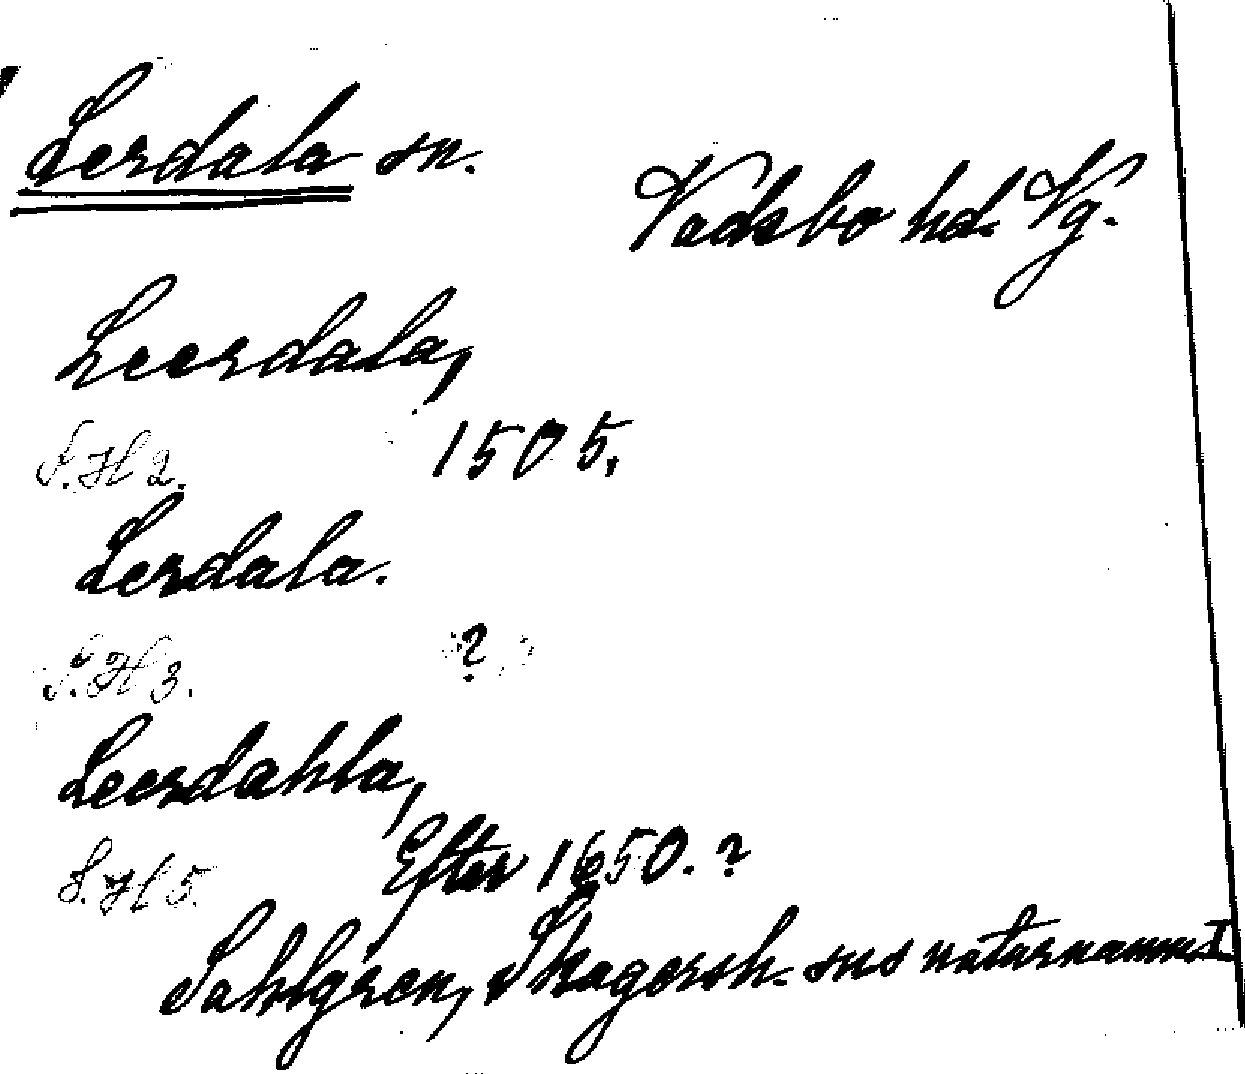 Lerdala sn.
Vadsbo hd. Vg.
Leerdala,
S.H 2. 1505.
Lerdala.
S.H 3. ?
Leerdahla,
S.H 5. Efter 1650. ?
Sahlgren, Skagersh. sns naturnamn I